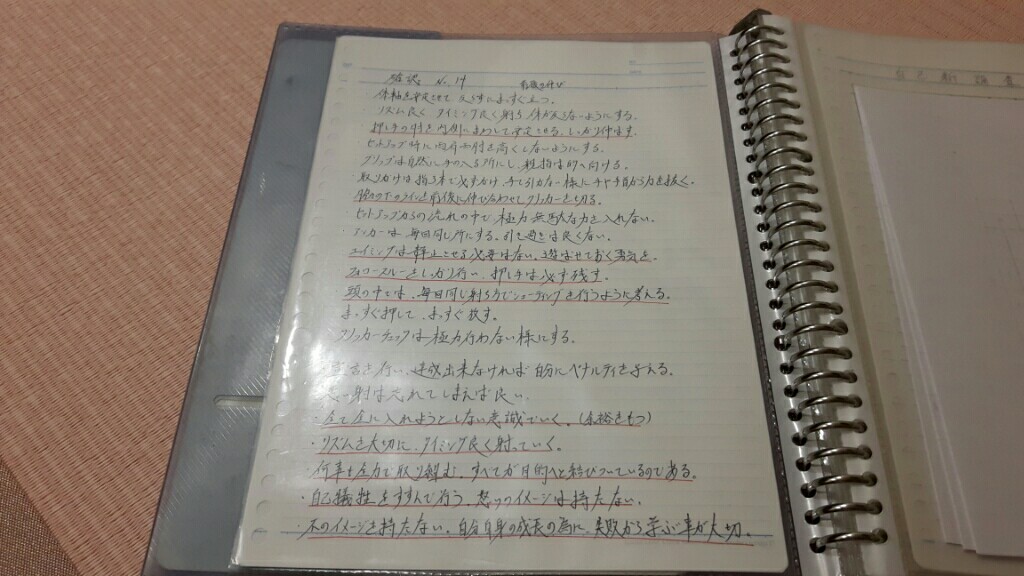 確認 No.14 前後の伸び
体軸を安定させて 反らずにまっすぐ立つ。
リズム良く タイミング良く射ち 体が反らないようにする。
押し手の引き 内側にまわして安定させる。しっかり伸ばす。
セットアップ時に両肩 を高くしないようにする。
グリップは自然に手の入る所にし、親指は的へ向ける。
取りかけは指3本で必ずかけ、手で引かない様に手や手首から力を抜く。
脇の下のラインを前後に伸び合わせ クリッカーを切る。
セットアップからの流れの中で 極力 無駄な力を入れない。
アンカーは毎回同じ所にする。引き過ぎは良くない。
エイミングは静止させる必要はない。遊ばせておく勇気を。
フォロースルーをしっかり行い、押し手は必ず残す。
頭の中では、毎回同じ射ち方でシューティングを行うように考える。
まっすぐ押して、まっすぐ放す。
クリッカーチェックは極力行わない様にする。
言を行い、達成出来なければ 自分にペナルティを与える。
射は忘れてしまえば良い。
・全て金に入れようとしない意識でいく。(余裕をもつ)
・リズムを大切に、タイミング良く射っていく。
・何事も全力で取り組む、すべてが目的へと結びついているのである。
・自己犠牲をすすんで行う、怒りのイメージは持たない。
・不のイメージを持たない。自分自身の成長の為に、失敗から学ぶ事が大切。
自己